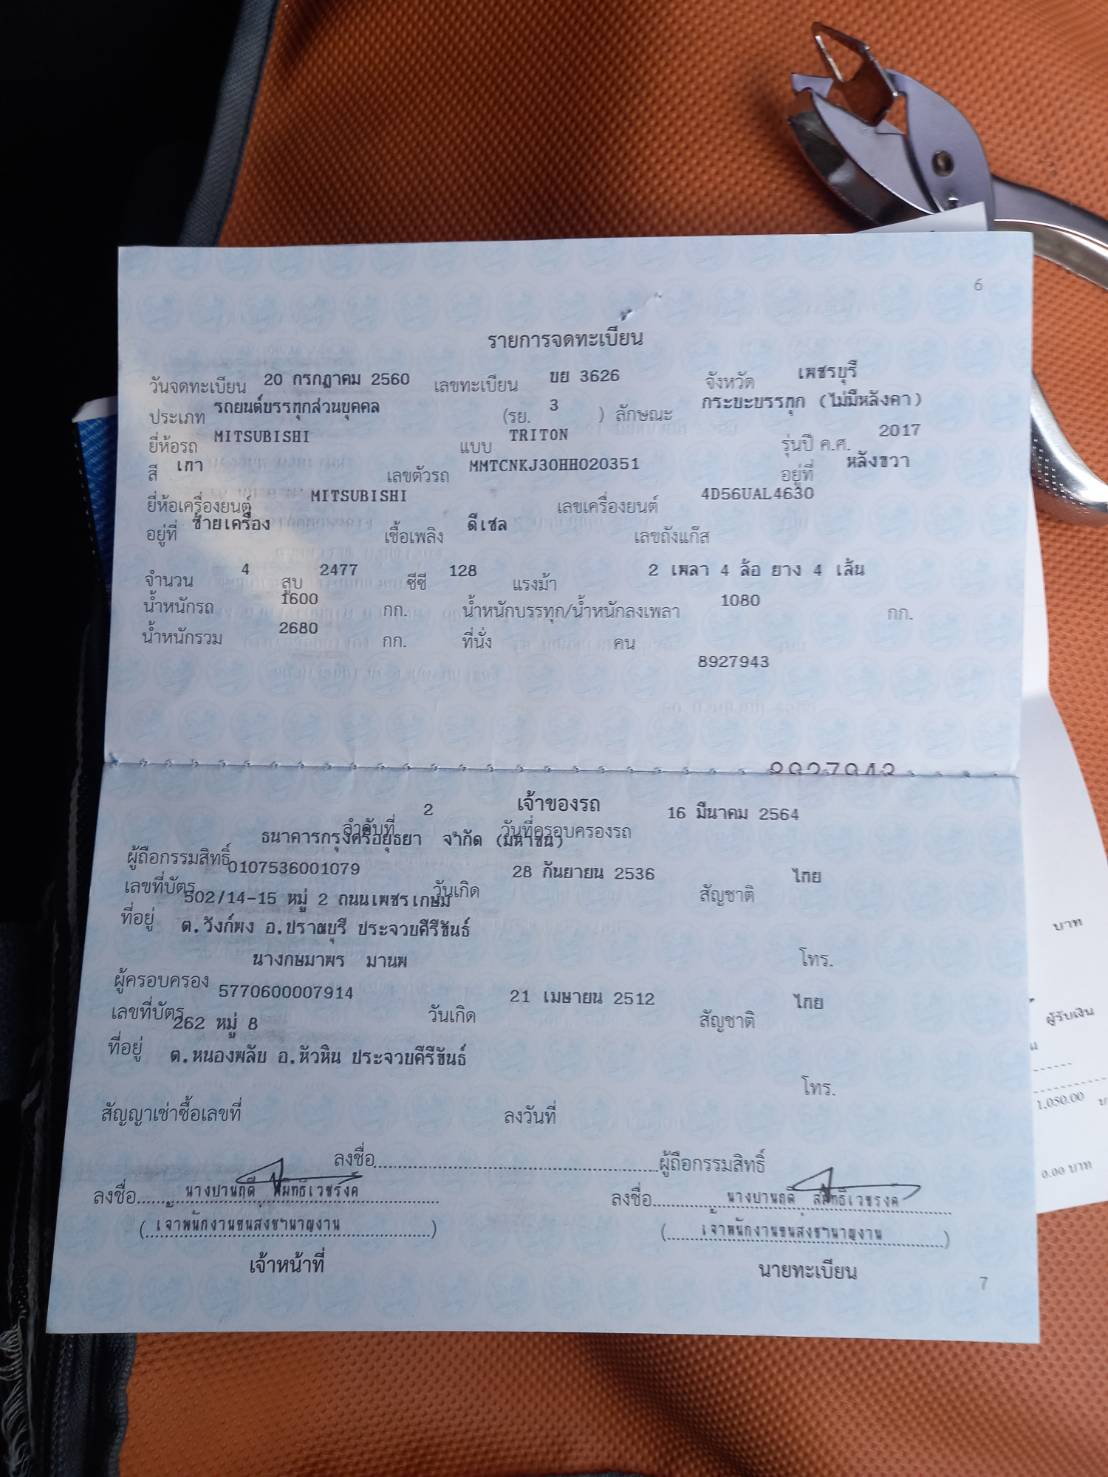 6
รายการจดทะเบียน
วันจดทะเบียน 20 กรกฎาคม 2560 เลขทะเบียน ขย 3626 จังหวัด เพชรบุรี
ประเภท รถยนต์บรรทุกส่วนบุคคล (รย. 3 ) ลักษณะ กระบะบรรทุก (ไม่มีหลังคา)
ยี่ห้อรถ MITSUBISHI แบบ TRITON รุ่นปี ค.ศ. 2017
สี เทา เลขตัวรถ MMTCNKJ30HH020351 อยู่ที่ หลังขวา
ยี่ห้อเครื่องยนต์ MITSUBISHI เลขเครื่องยนต์ 4D56UAL4630
อยู่ที่ ซ้ายเครื่อง เชื้อเพลิง ดีเซล เลขถังแก๊ส
จำนวน 4 สูบ 2477 ซีซี 128 แรงม้า 2 เพลา 4 ล้อ ยาง 4 เส้น
น้ำหนักรถ 1600 กก. น้ำหนักบรรทุก/น้ำหนักลงเพลา 1080 กก.
น้ำหนักรวม 2680 กก. ที่นั่ง คน
8927943
8927943
เจ้าของรถ
ลำดับที่ 2 วันที่ครอบครองรถ 16 มีนาคม 2564
ผู้ถือกรรมสิทธิ์ ธนาคารกรุงศรีอยุธยา จำกัด (มหาชน)
เลขที่บัตร 0107536001079 วันเกิด 28 กันยายน 2536 สัญชาติ ไทย
ที่อยู่ 502/14-15 หมู่ 2 ถนนเพชรเกษม
ต.วังก์พง อ.ปราณบุรี ประจวบคีรีขันธ์
โทร.
ผู้ครอบครอง นางกษมาพร มานพ
เลขที่บัตร 5770600007914 วันเกิด 21 เมษายน 2512 สัญชาติ ไทย
ที่อยู่ 262 หมู่ 8
ต.หนองพลับ อ.หัวหิน ประจวบคีรีขันธ์
โทร.
สัญญาเช่าซื้อเลขที่ ลงวันที่
ลงชื่อ ผู้ถือกรรมสิทธิ์
ลงชื่อ นางปานฤดี ลงชื่อ นางปานฤดี
(เจ้าพนักงานขนส่งชำนาญงาน) (เจ้าพนักงานขนส่งชำนาญงาน)
เจ้าหน้าที่ นายทะเบียน
7
บาท
ผู้รับเงิน
1,050.00
0.00 บาท